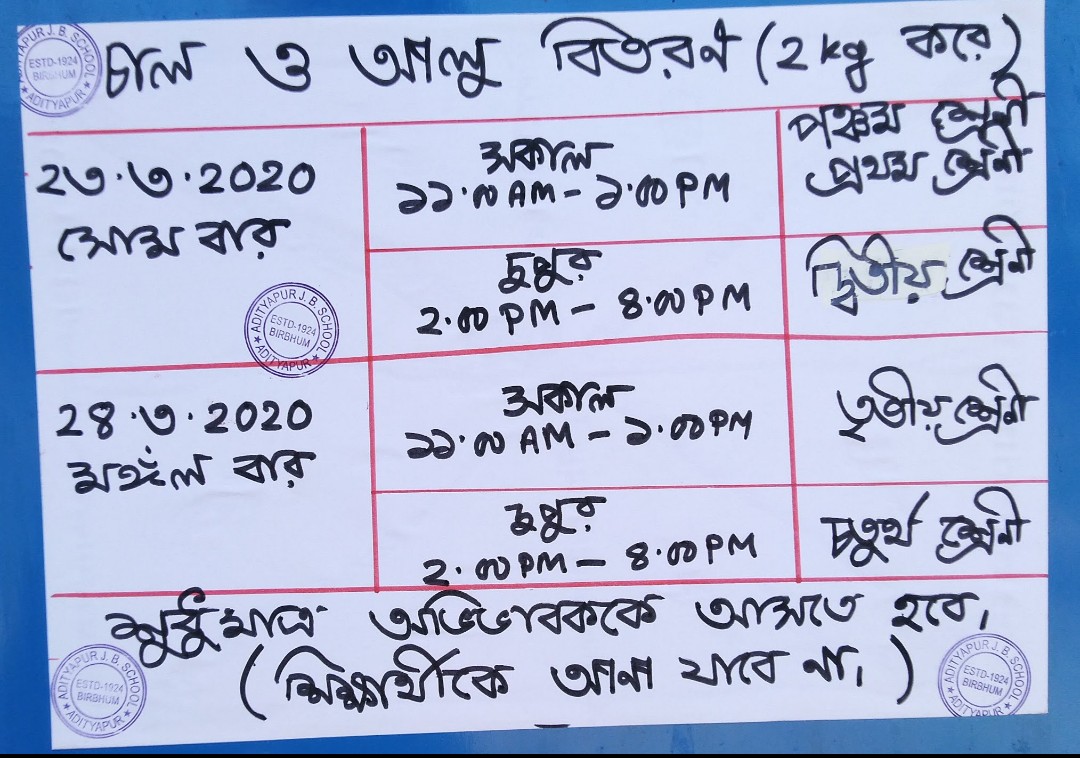 চাল ও আলু বিতরণ (2 kg করে)
২৩.৩.2020
সোম বার
সকাল
১১.00 AM - ১.00 PM
পঞ্চম শ্রেনী
প্রথম শ্রেনী
দুপুর
2.00 PM - ৪.00 PM
দ্বিতীয় শ্রেনী
২৪.৩.2020
মঙ্গঁল বার
সকাল
১১.00 AM - ১.00 PM
তৃতীয় শ্রেনী
দুপুর
2.00 PM - ৪.00 PM
চতুর্থ শ্রেনী
শুধুমাত্র অভিভাবককে আসতে হবে।
(শিক্ষার্থীকে আনা যাবে না।)
ADITYAPUR J. B. SCHOOL
ESTD-1924
BIRBHUM
ADITYAPUR
ADITYAPUR J. B. SCHOOL
ESTD-1924
BIRBHUM
ADITYAPUR
ADITYAPUR J. B. SCHOOL
ESTD-1924
BIRBHUM
ADITYAPUR
ADITYAPUR J. B. SCHOOL
ESTD-1924
BIRBHUM
ADITYAPUR